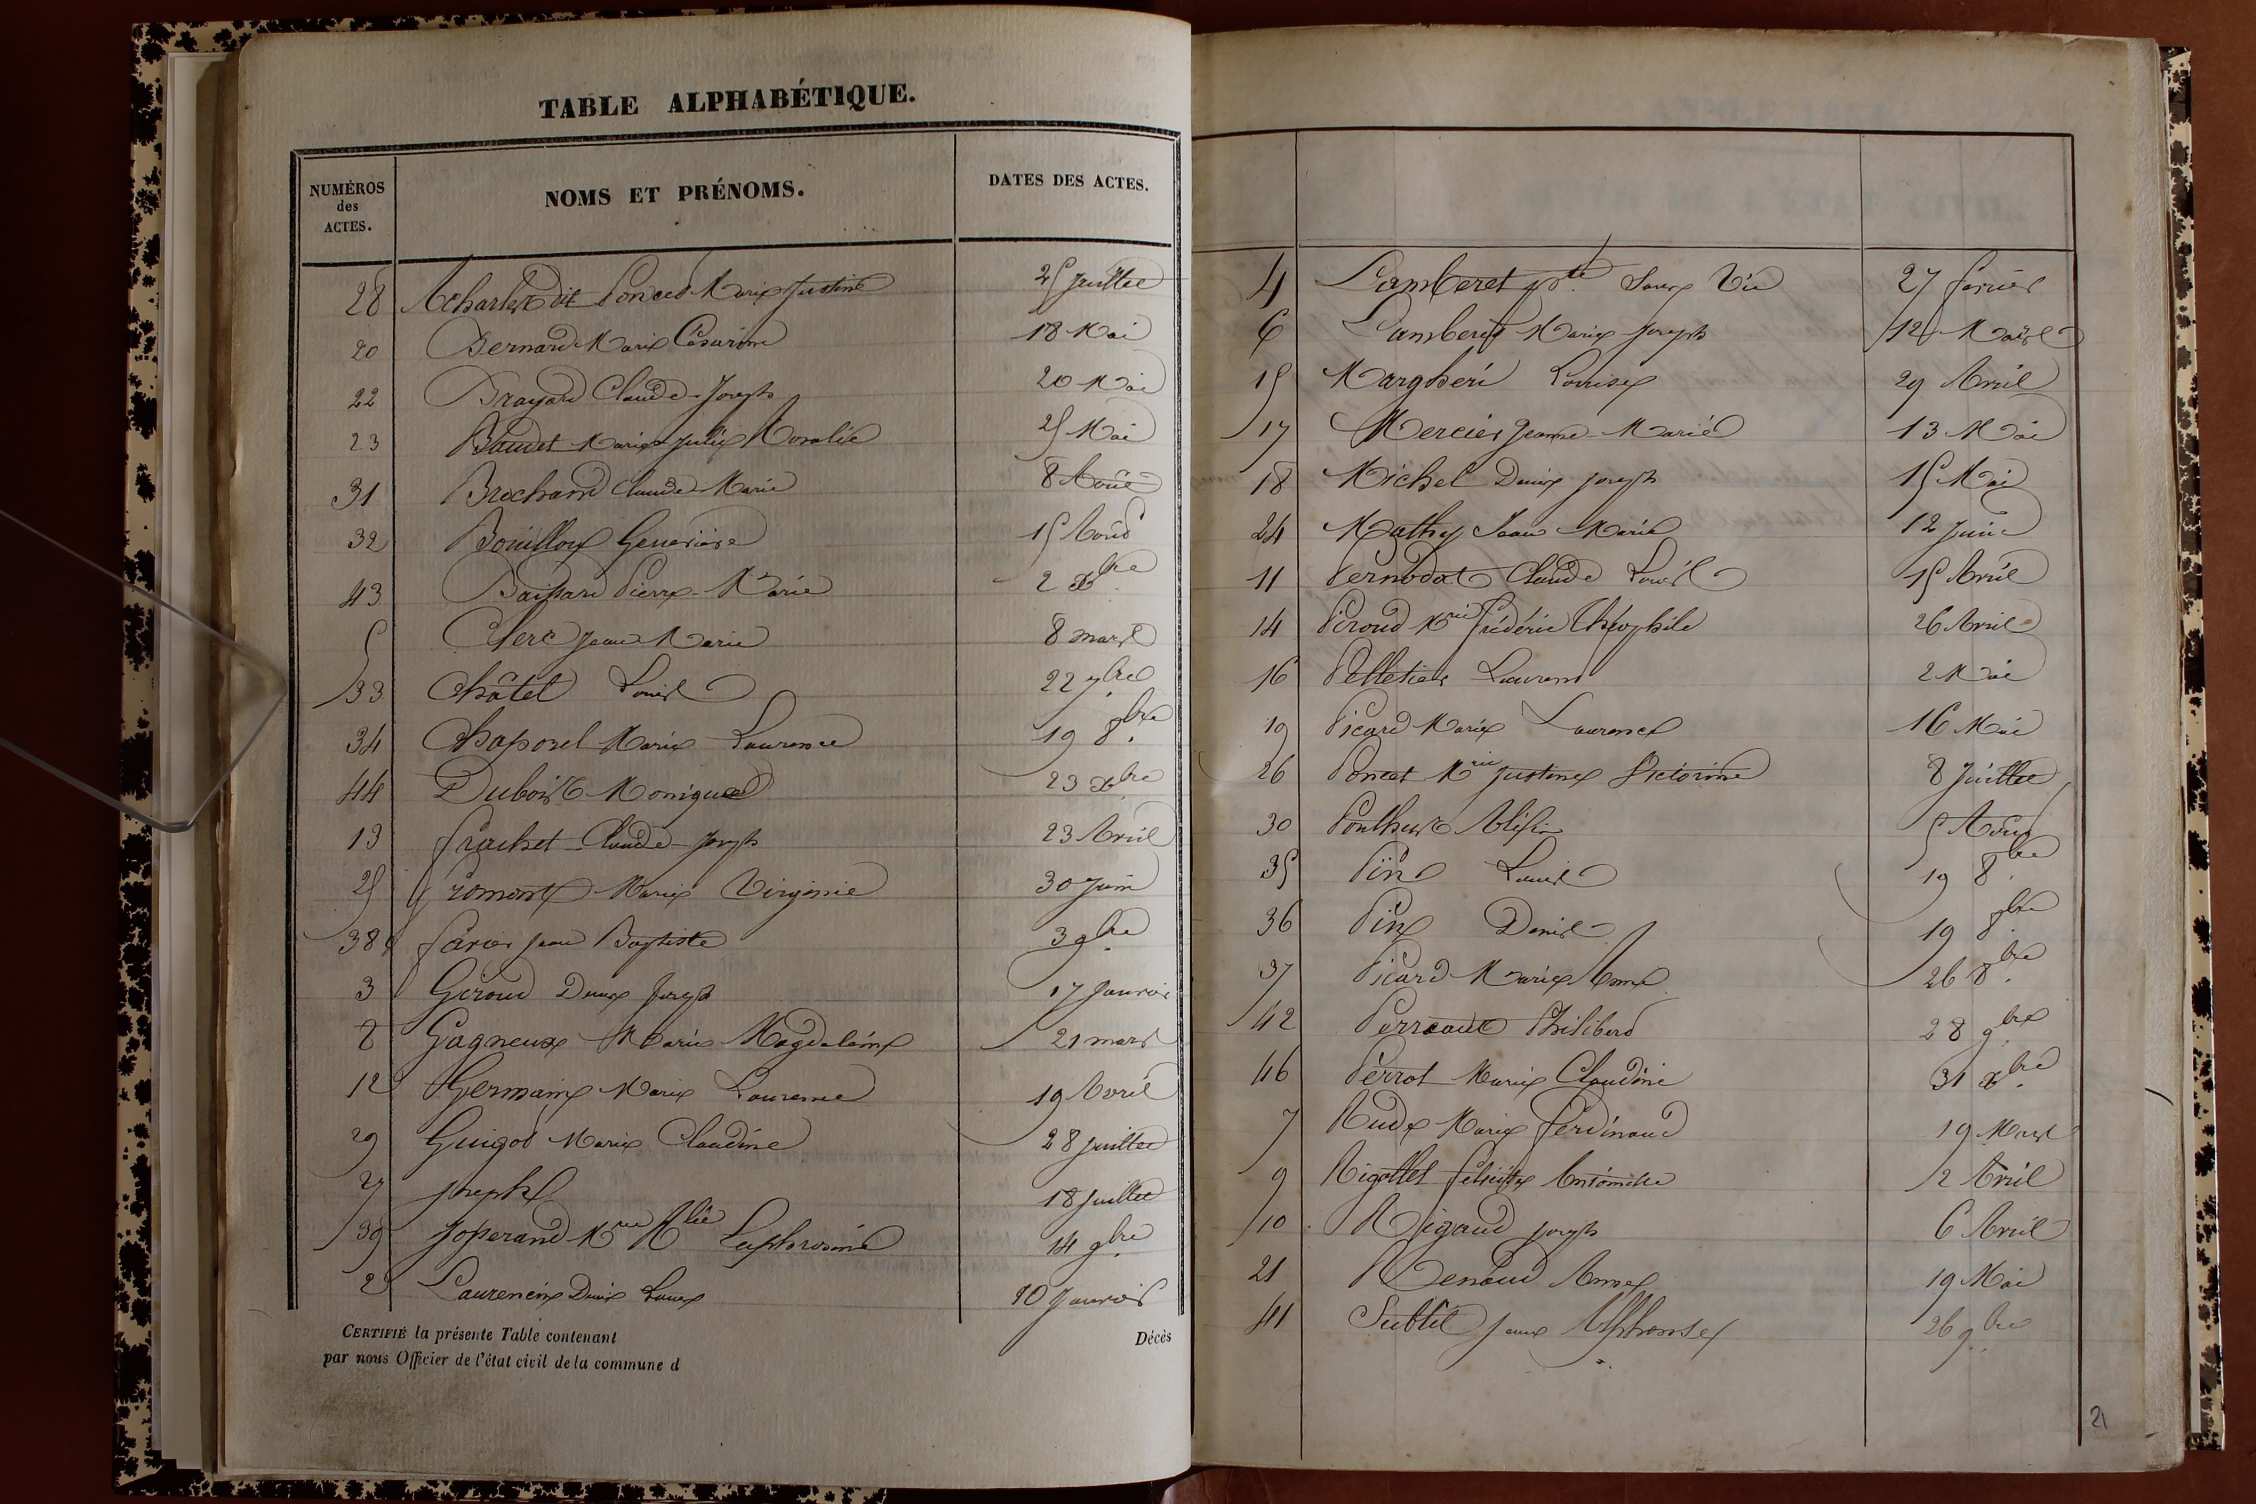 TABLE ALPHABÉTIQUE.
NUMÉROS des ACTES.
NOMS ET PRÉNOMS.
DATES DES ACTES.
28 dit Poncet Marie Justine 25 Juillet
20 Bernard Marie Césarine 18 Mai
22 Brayard Claude Joseph 20 Mai
23 Baudet Marie Julie Rosalie 25 Mai
31 Brochand Claude Marie 8 Août
32 Bouilloux Geneviève 15 Août
43 Baissard Pierre Marie 2 Xbre
5 Clerc Jean Marie 8 mars
33 Châtel Louis 22 7bre
34 Chaposel Marie Laurence 19 8bre
44 Dubois Monique 23 Xbre
13 Frachet Claude Joseph 23 Avril
25 Fromont Marie Virginie 30 Juin
38 Favier Jean Baptiste 3 9bre
3 Giroud Denis Joseph 17 Janvier
8 Gagneux Marie Magdeleine 21 mars
12 Germain Marie Laurence 19 Avril
29 Guigot Marie Claudine 28 Juillet
27 Joseph 18 Juillet
39 Josserand Mie Euphrosine 14 9bre
2 Laurencin Denis 10 Janvier
CERTIFIÉ la présente Table contenant Décès
par nous Officier de l'état civil de la commune d
4 Lamberet 27 février
6 Lamberet Marie Joseph 12 Mars
15 Margheri Louise 29 Avril
17 Mercier Jeanne Marie 13 Mai
18 Michel Denis Joseph 15 Mai
24 Mathy Jean Marie 12 Juin
11 Pernodat Claude Louis 15 Avril
14 Piroud Mrie Frédéric Théophile 26 Avril
16 Pelletier Laurent 2 Mai
19 Picard Marie Laurence 16 Mai
26 Poncet Mrie Justine Victorine 8 Juillet
30 Ponthus 5 Août
35 Pin Louis 19 8bre
36 Pin Denis 19 8bre
37 Picard Marie Anne 26 8bre
42 Perraut Philibert 28 9bre
46 Perrot Marie Claudine 31 Xbre
7 Rude Marie Ferdinand 19 Mars
9 Rigottet Antoinette 2 Avril
10 Rigaud Joseph 6 Avril
21 Renaud Anne 19 Mai
41 Subtil Jean Alphonse 26 9bre
21